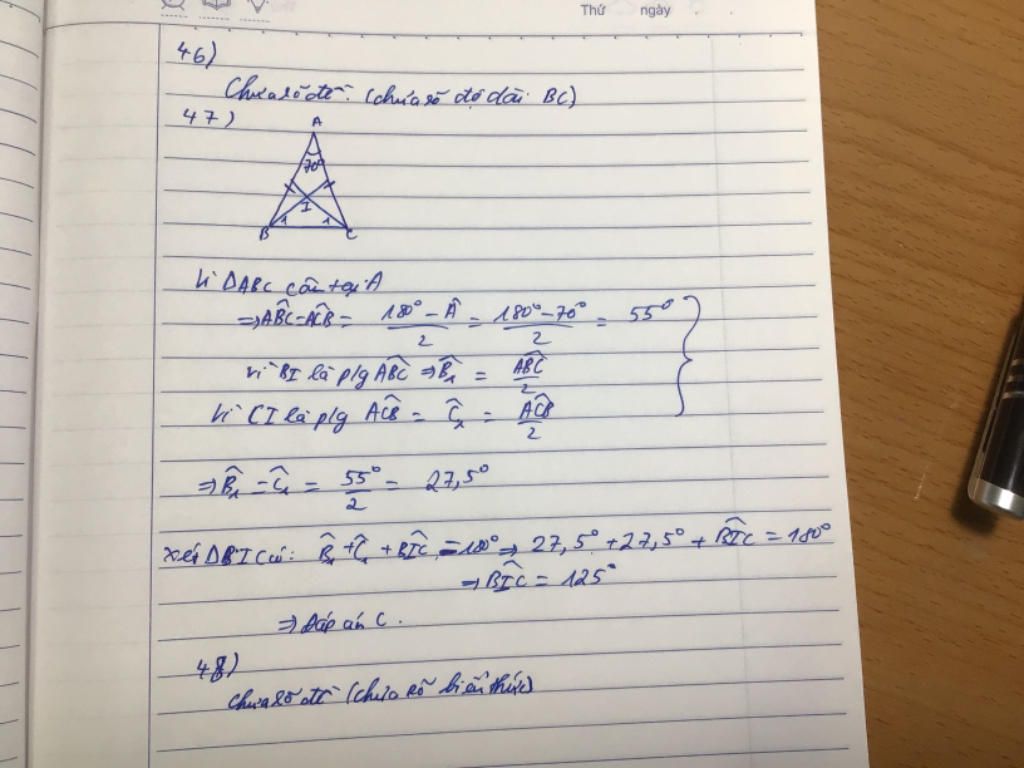 Thứ ngày
46)
Chưa rõ đề. (chưa rõ độ dài BC)
47)
A
70°
I
B 1 1 C
Vì ΔABC cân tại A
⇒ ABC = ACB = (180° - Â)/2 = (180° - 70°)/2 = 55°
Vì BI là p/g ABC ⇒ B̂₁ = ABC/2
Vì CI là p/g ACB = Ĉ₁ = ACB/2
⇒ B̂₁ = Ĉ₁ = 55°/2 = 27,5°
Xét ΔBIC có: B̂₁ + Ĉ₁ + BIC = 180° ⇒ 27,5° + 27,5° + BIC = 180°
⇒ BIC = 125°
⇒ Đáp án C.
48)
Chưa rõ đề (chưa rõ biểu thức)